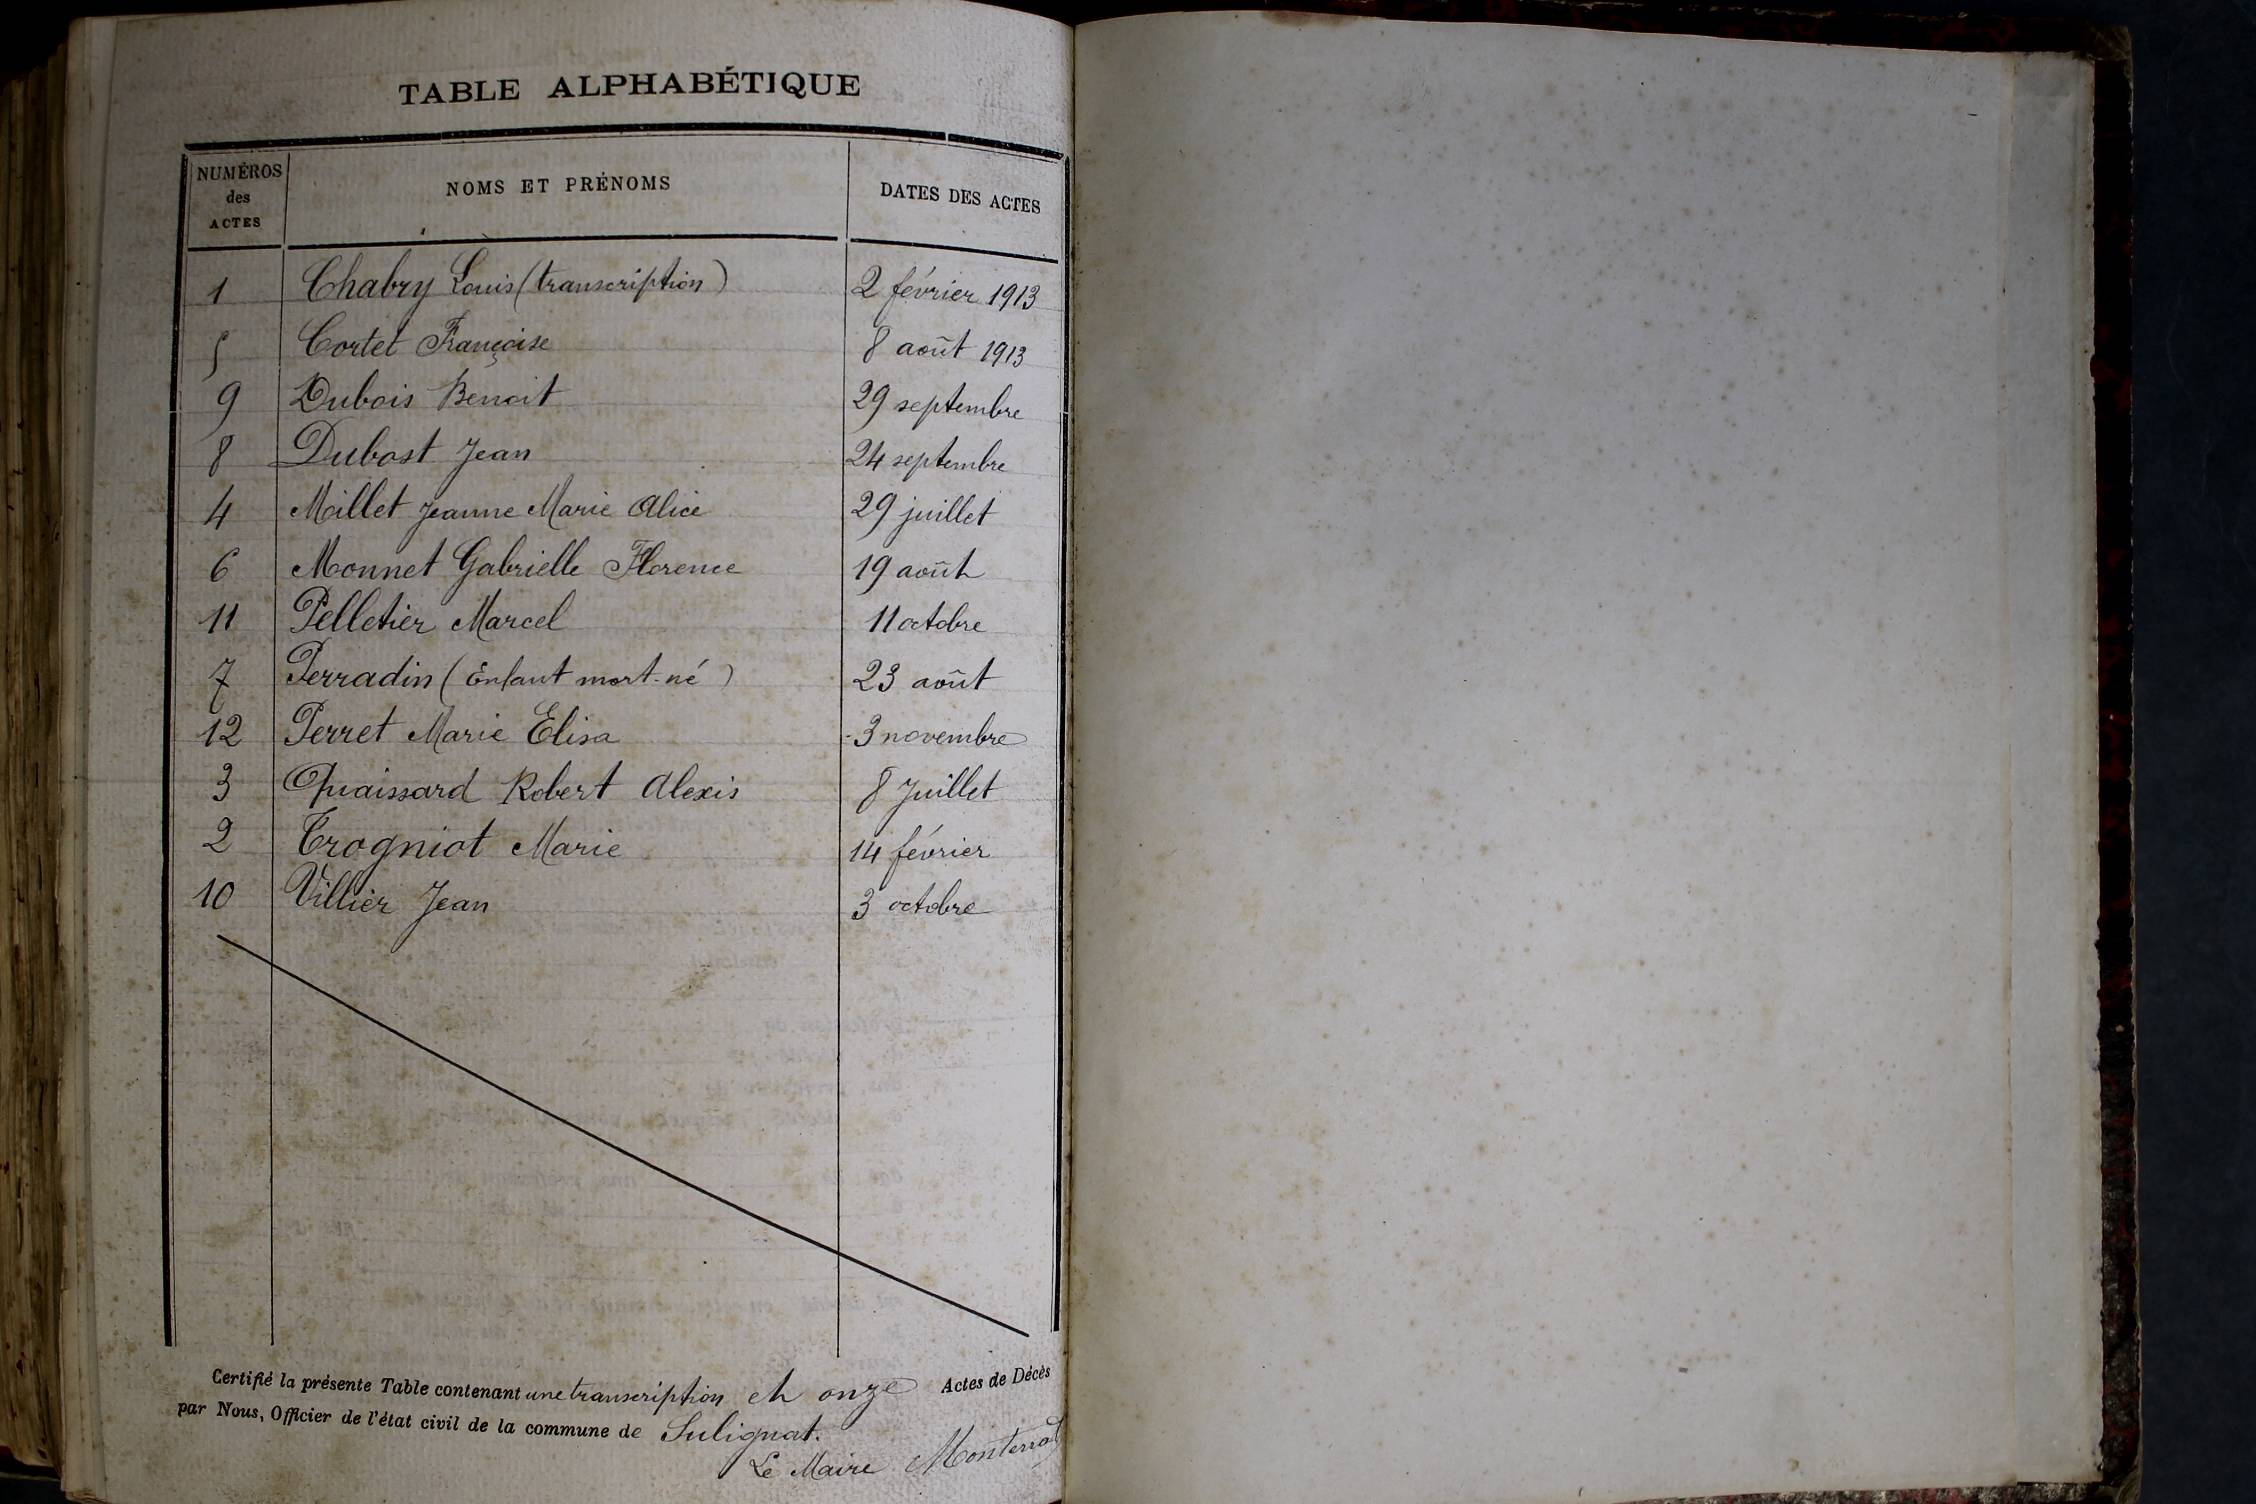 TABLE ALPHABÉTIQUE
NUMÉROS des ACTES NOMS ET PRÉNOMS DATES DES ACTES
1 Chabry Louis (transcription) 2 février 1913
5 Cortet Françoise 8 août 1913
9 Dubois Benoit 29 septembre
8 Dubost Jean 24 septembre
4 Millet Jeanne Marie Alice 29 juillet
6 Monnet Gabrielle Florence 19 août
11 Pelletier Marcel 11 octobre
7 Perradin (Enfant mort-né) 23 août
12 Perret Marie Elisa 3 novembre
3 Quaissard Robert Alexis 8 Juillet
2 Trogniot Marie 14 février
10 Villier Jean 3 octobre
Certifié la présente Table contenant une transcription et onze Actes de Décès
par Nous, Officier de l'état civil de la commune de Sulignat.
Le Maire Monterrat